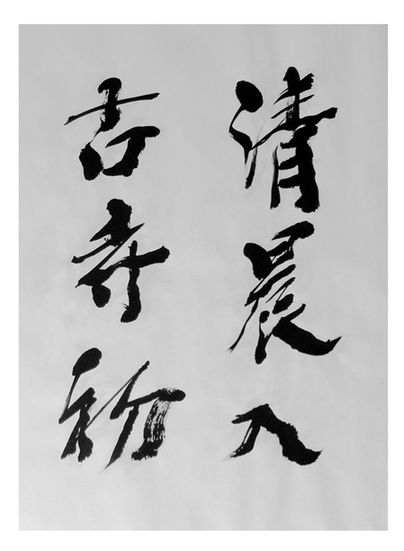 清晨入
古寺初